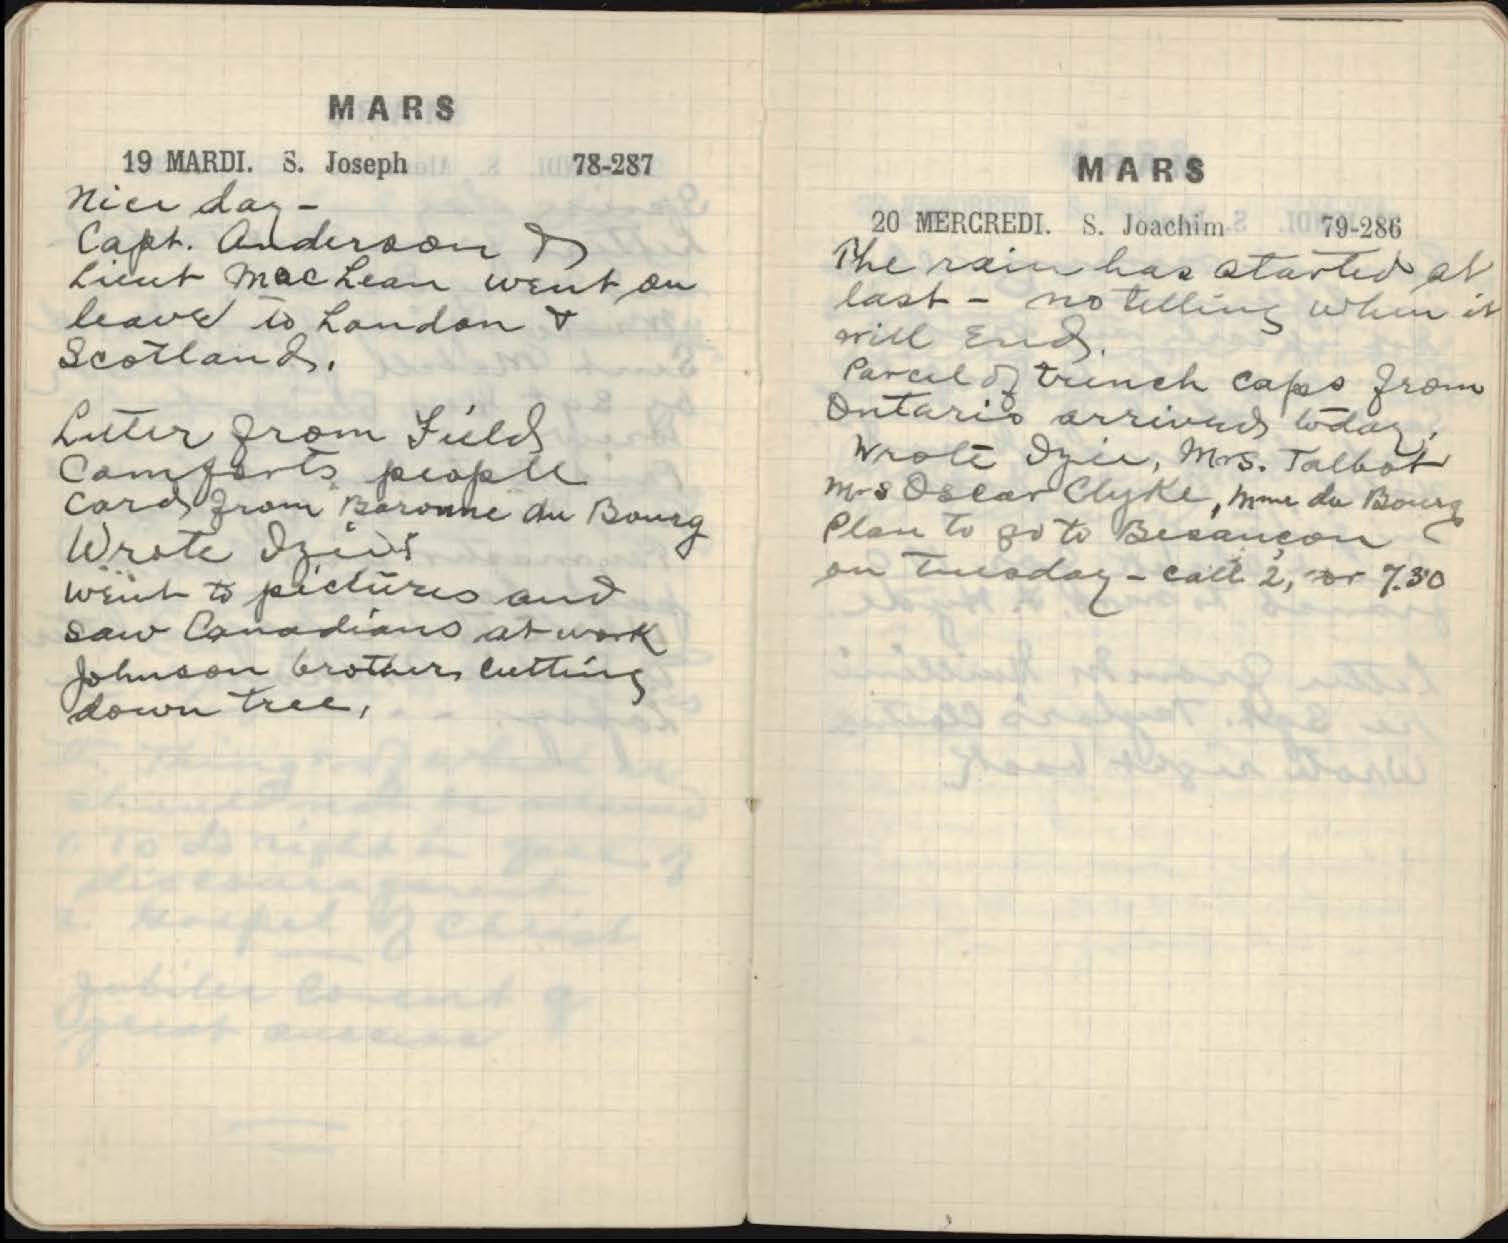 MARS
19 MARDI. S. Joseph 78-287
Nice day -
Capt. Anderson &
Lieut MacLean went on
leave to London &
Scotland.
Letter from Field
Comforts people
Card from Baronne du Bourg
Wrote Izie
went to pictures and
saw Canadians at work
Johnson brothers cutting
down tree.
MARS
20 MERCREDI. S. Joachim 79-286
The rain has started at
last - no telling when it
will End.
Parcel of trench caps from
Ontario arrived today.
Wrote Izie, Mrs. Talbot
Mrs Oscar Clyke, Mme du Bourg
Plan to go to Besançon
on Tuesday - call 2, or 7.30